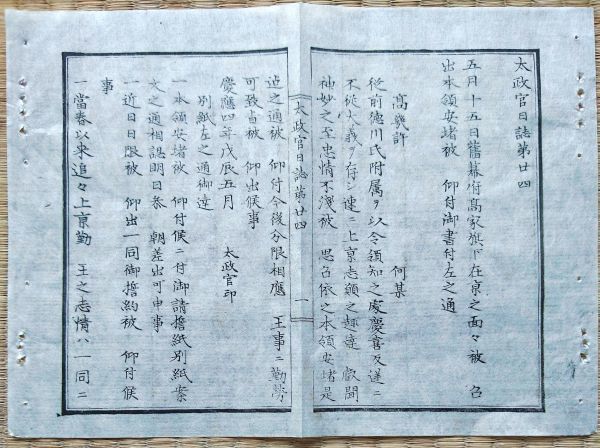 太政官日誌第廿四
五月十五日舊幕府高家旗下在京之面々被 召
出本領安堵被 仰付御書付左之通
高幾許
何某
從前德川氏附属ヲ以令領知之處慶喜反逆ニ
不從大義ヲ存シ速ニ上京志願之趣達 叡聞
神妙之至忠情不浅被 思召依之本領安堵是
太政官日誌第廿四
一
迠之通被 仰付今後分限相應 王事ニ勤勞
可致旨被 仰出候事
慶應四年戊辰五月 太政官印
別紙左之通御達
一本領安堵被 仰付候ニ付御請誓紙別紙案
文之通相認明日参 朝差出可申事
一近日日限被 仰出一同御誓約被 仰付候
事
一當春以来追々上京勤 王之志情ハ一同ニ